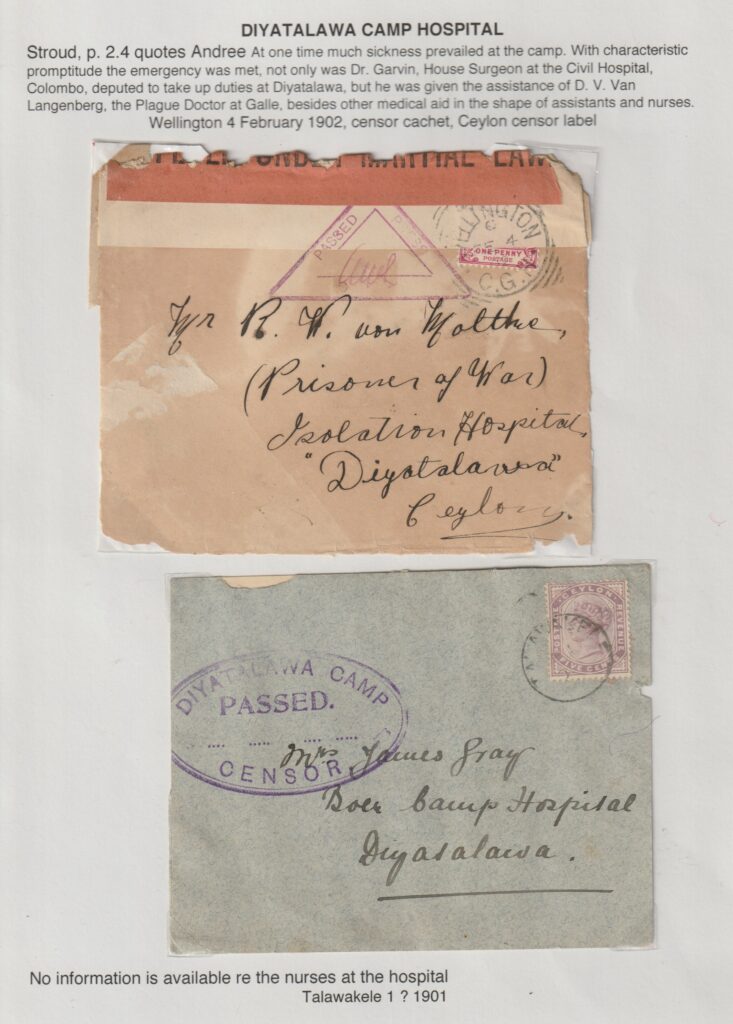 DIYATALAWA CAMP HOSPITAL
Stroud, p. 2.4 quotes Andree At one time much sickness prevailed at the camp. With characteristic
promptitude the emergency was met, not only was Dr. Garvin, House Surgeon at the Civil Hospital,
Colombo, deputed to take up duties at Diyatalawa, but he was given the assistance of D. V. Van
Langenberg, the Plague Doctor at Galle, besides other medical aid in the shape of assistants and nurses.
Wellington 4 February 1902, censor cachet, Ceylon censor label
UNDER MARTIAL LAW
PASSED PRESS
WELLINGTON
6
FE 4
C.G.H
ONE PENNY
POSTAGE
Mr R. W. von Moltke,
(Prisoner of War)
Isolation Hospital,
"Diyatalawa"
Ceylon.
POSTAGE CEYLON REVENUE
FIVE CEN
DIYATALAWA CAMP
PASSED.
CENSOR
Mrs James Gray
Boer Camp Hospital
Diyatalawa.
No information is available re the nurses at the hospital
Talawakele 1 ? 1901